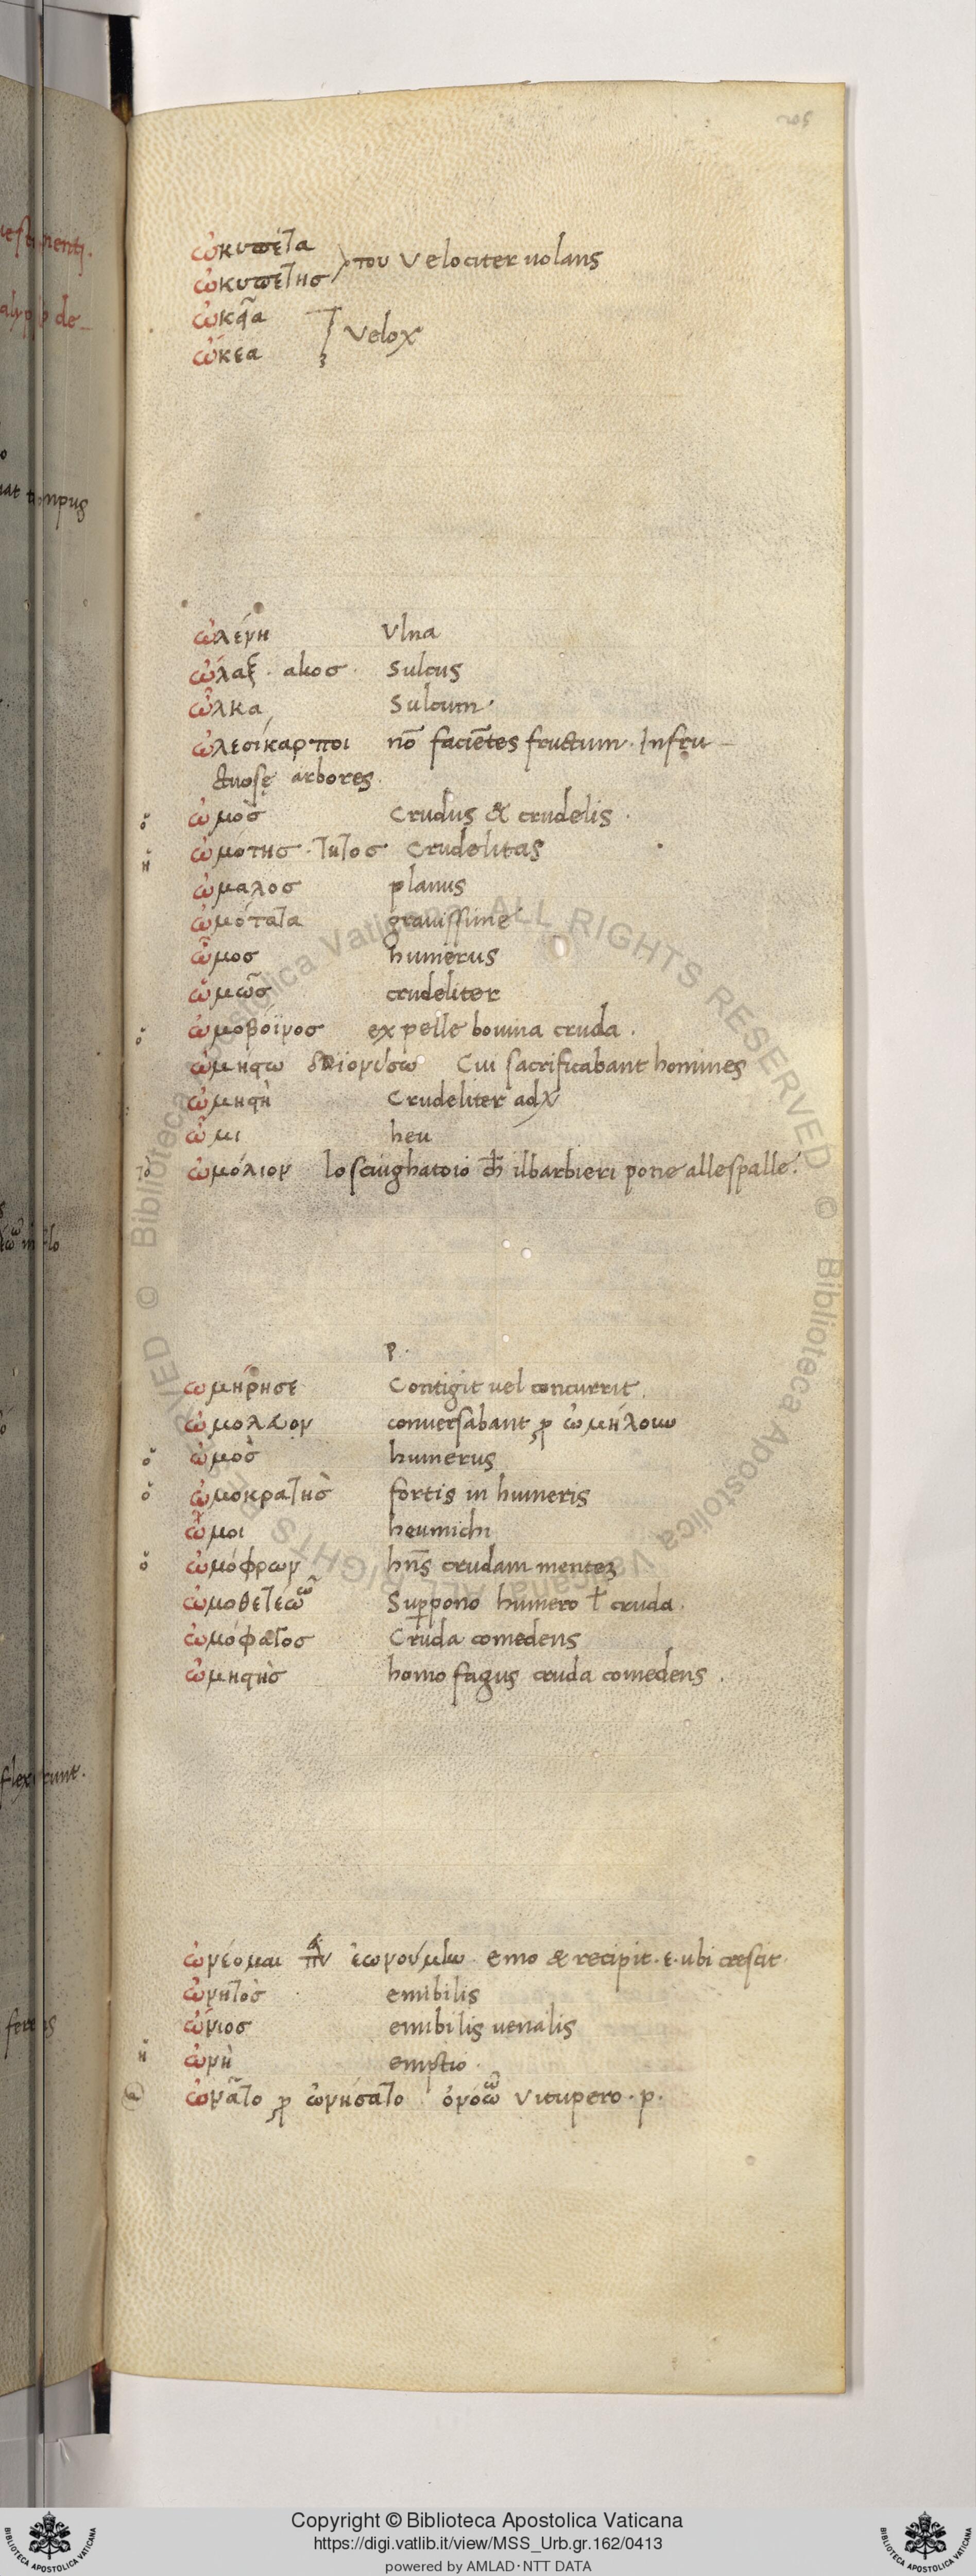 205
ὠκυπέτα
ὠκυπέτης του velociter uolans
ὠκεῖα
ὠκέα velox
ὠλένη Vlna
ὦλαξ · ακος · Sulcus
ὦλκα Sulcum ·
ὠλεσίκαρποι nō faciētes fructum · Infru-
ctuosę arbores ·
ὁ ὠμὸς Crudus & crudelis ·
ἡ ὠμότης · τητος crudelitas
ὠμαλος planus
ὠμότατα grauissime
ὦμος humerus
ὠμῶς crudeliter
ὁ ὠμοβόϊνος ex pelle bouina cruda ·
Cui sacrificabant homines
Crudeliter
ὤμι heu
τὸ ὠμόλιον lo sciughatoio ch̄ ilbarbieri pone allespalle ·
p ·
ὠμήρησε Contigit uel concurrit ·
conuersabant
ὁ ὠμὸς humerus
ὁ ὠμοκρατὴς fortis in humeris
ὤμοι heumichi
ὁ ὠμόφρων hn̄s crudam mentez
ὠμοθετέω ῶ Suppono humero ł cruda ·
ὠμόφαγος Cruda comedens
ὠμηστὴς homo fagus cruda comedens ·
ὠνέομαι ἐωνούμην emo & recipit · ε · ubi crescit ·
ὠνητὸς · emibilis
ὤνιος emibilis uenalis
ἡ ὠνὴ emptio ·
ὠνᾶτο ꝓ ὠνήσατο ὀνόω ῶ vitupero · p ·
Biblioteca Apostolica Vaticana ALL RIGHTS RESERVED ©
Biblioteca Apostolica Vaticana ALL RIGHTS RESERVED ©
Copyright © Biblioteca Apostolica Vaticana
https://digi.vatlib.it/view/MSS_Urb.gr.162/0413
powered by AMLAD·NTT DATA